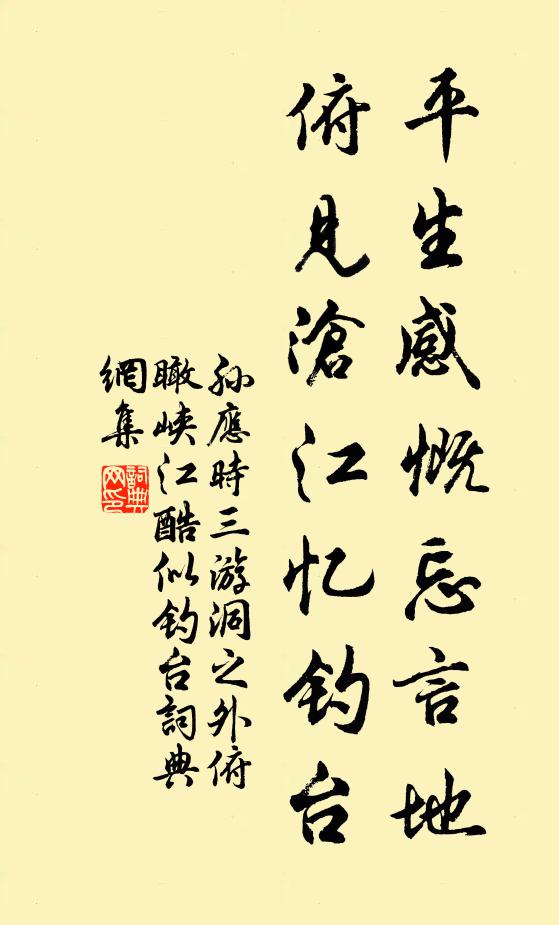 平生感慨忘言地
俯見滄江忆钓台
孙應時三游洞之外俯
瞰峡江酷似钓台詞典
網集
詞典
网印